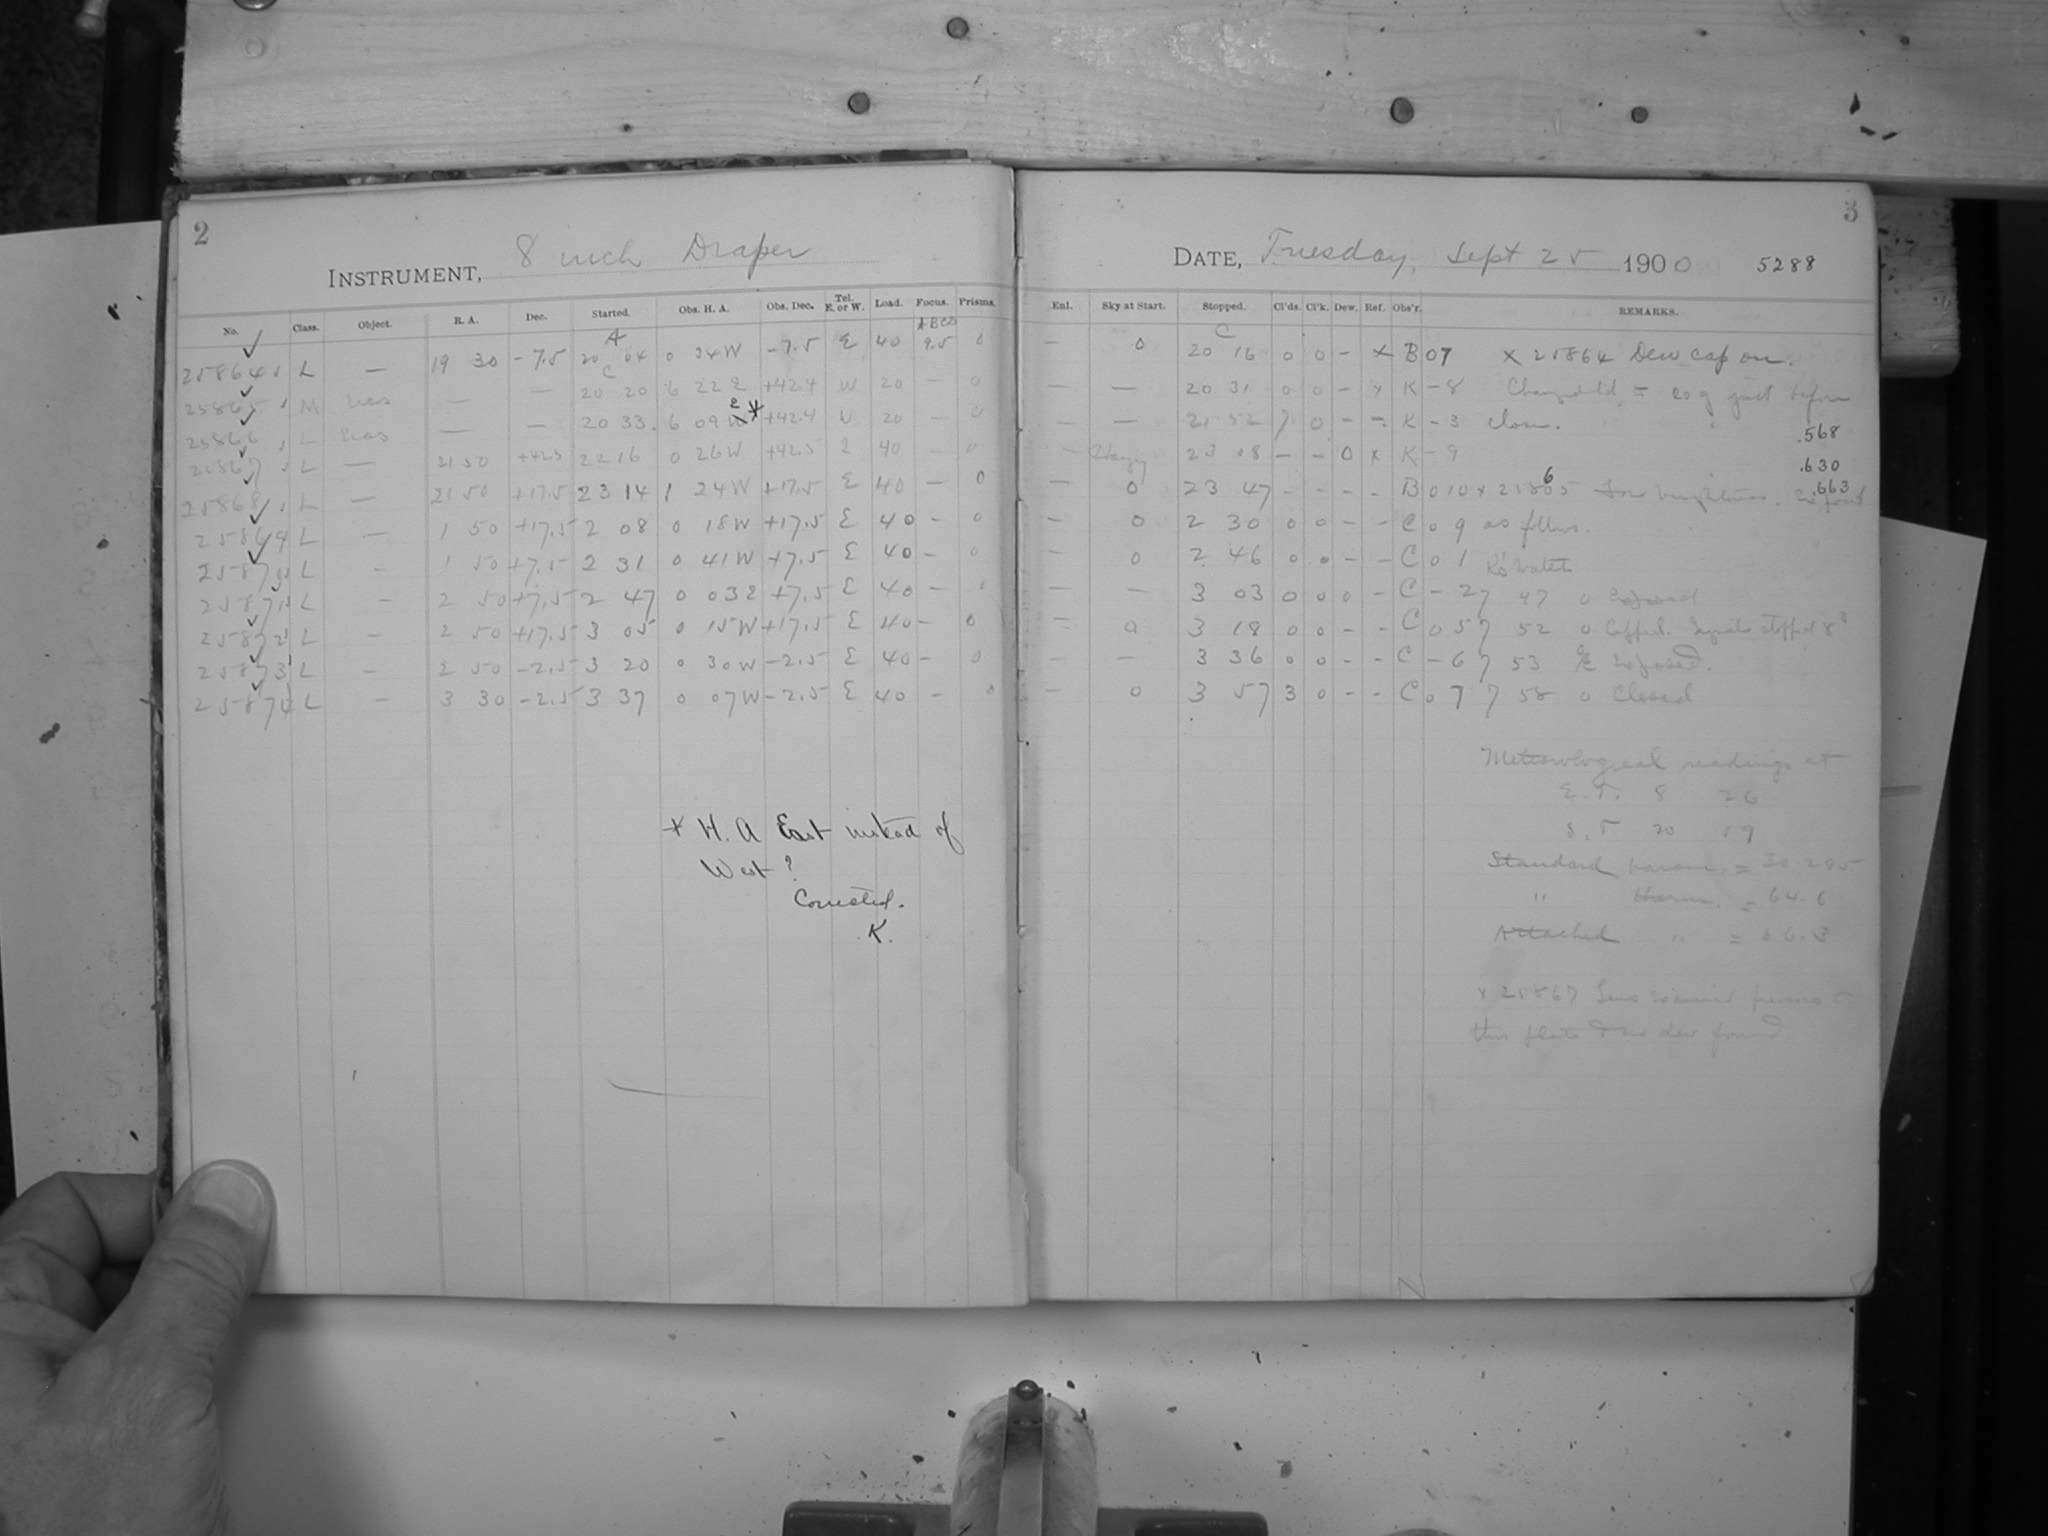 2
INSTRUMENT, 8 inch Draper
No. Class. Object. R. A. Dec. Started. Obs. H. A. Obs. Dec. Tel. E. or W. Load. Focus. Prisms.
25864 L — 19 30 -7.5 A 20 04 0 34W -7.5 E 40 ABCD 9.5 0
25865 M — — C 20 20 6 22 E +42.4 W 20 — 0
25866 L — — 20 33 6 09 E * +42.4 W 20 — 0
25867 L — 21 50 +42.5 22 16 0 26W +42.5 E 40 — 0
25868 L — 21 50 +17.5 23 14 1 24W +17.5 E 40 — 0
25869 L — 1 50 +17.5 2 08 0 18W +17.5 E 40 - 0
25870 L — 1 50 +7.5 2 31 0 41W +7.5 E 40 - 0
25871 L — 2 50 +7.5 2 47 0 03E +7.5 E 40 - 0
25872 L — 2 50 +17.5 3 05 0 15W +17.5 E 40 - 0
25873 L — 2 50 -2.5 3 20 0 30W -2.5 E 40 - 0
25874 L — 3 30 -2.5 3 37 0 07W -2.5 E 40 - 0
* H. A East instead of
West?
Corrected.
K.
3
DATE, Tuesday, Sept 25 1900 5288
Enl. Sky at Start. Stopped. Cl'ds. Cl'k. Dew. Ref. Obs'r. REMARKS.
— 0 C 20 16 0 0 - x B 07 x 25864 Dew cap on.
— — 20 31 0 0 - x K - 8 just before
— — 21 52 7 0 - - K - 3 close. .568
— Hazy 23 08 - - 0 x K - 9 .630
— 0 23 47 - - - - B 0 10 x 6 .663
— 0 2 30 0 0 - - C 0 9 as follows.
— 0 2 46 0 0 - - C 0 1
— — 3 03 0 0 0 - C - 2 7 47 0 Exposed
— 0 3 18 0 0 - - C 0 5 7 52 0 Capped. stopped
— — 3 36 0 0 - - C - 6 7 53 Exposed.
— 0 3 57 3 0 - - C 0 7 7 58 0 Closed
Meteorological readings at
E. T. 8 26
S. T 20 59
Standard barom. = 30.295
" therm. = 64.6
Attached " = 66.3
x 25867 Lens examined previous
this plate & no dew found